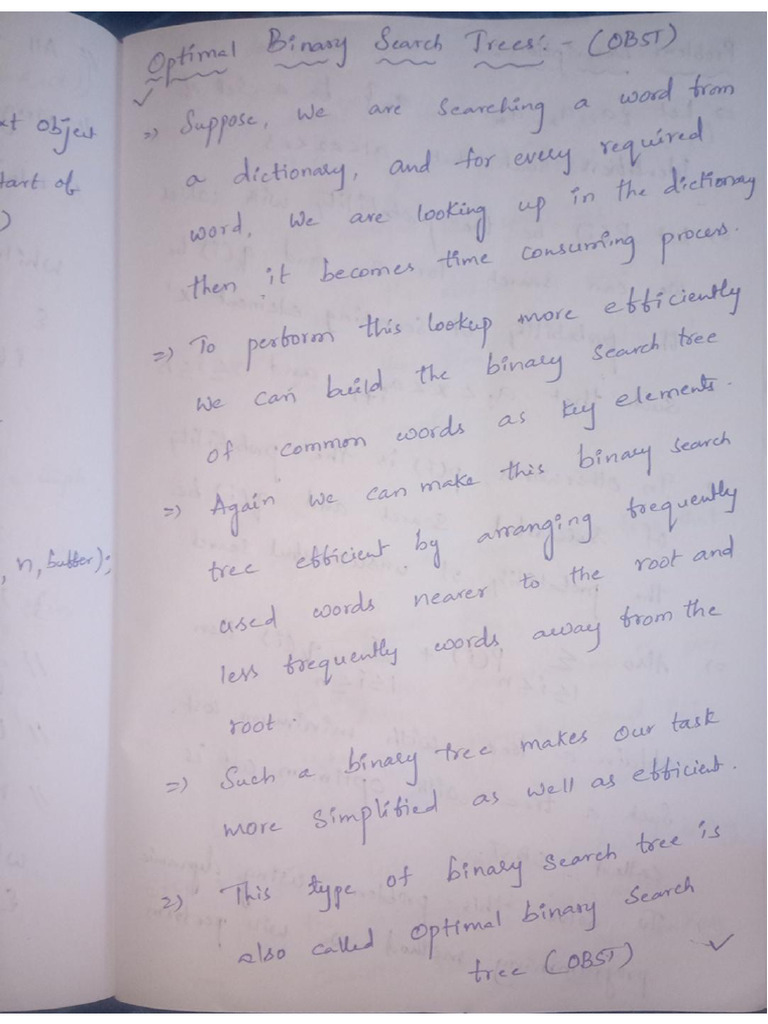 ct object
tart of
)
, n, buffer);
Optimal Binary Search Trees:- (OBST)
=> Suppose, we are searching a word from
a dictionary, and for every required
word, we are looking up in the dictionary
then it becomes time consuming process.
=> To perform this lookup more efficiently
we can build the binary search tree
of common words as key elements.
=> Again we can make this binary search
tree efficient by arranging frequently
used words nearer to the root and
less frequently words away from the
root.
=> Such a binary tree makes our task
more simplified as well as efficient.
=> This type of binary search tree is
also called optimal binary search
tree (OBST)